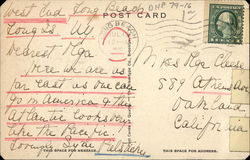 West End Long Beach DNP 79-16
POST CARD
Long Is. Ny
Dearest Nga
Here we are as
far east as one can
go in America & the
Atlantic looks very
like the Pacific.
Lovingly
THIS SPACE FOR MESSAGE.
Miss Nga Chase
559 Athens Ave
Oakland
California
THIS SPACE FOR ADDRESS.